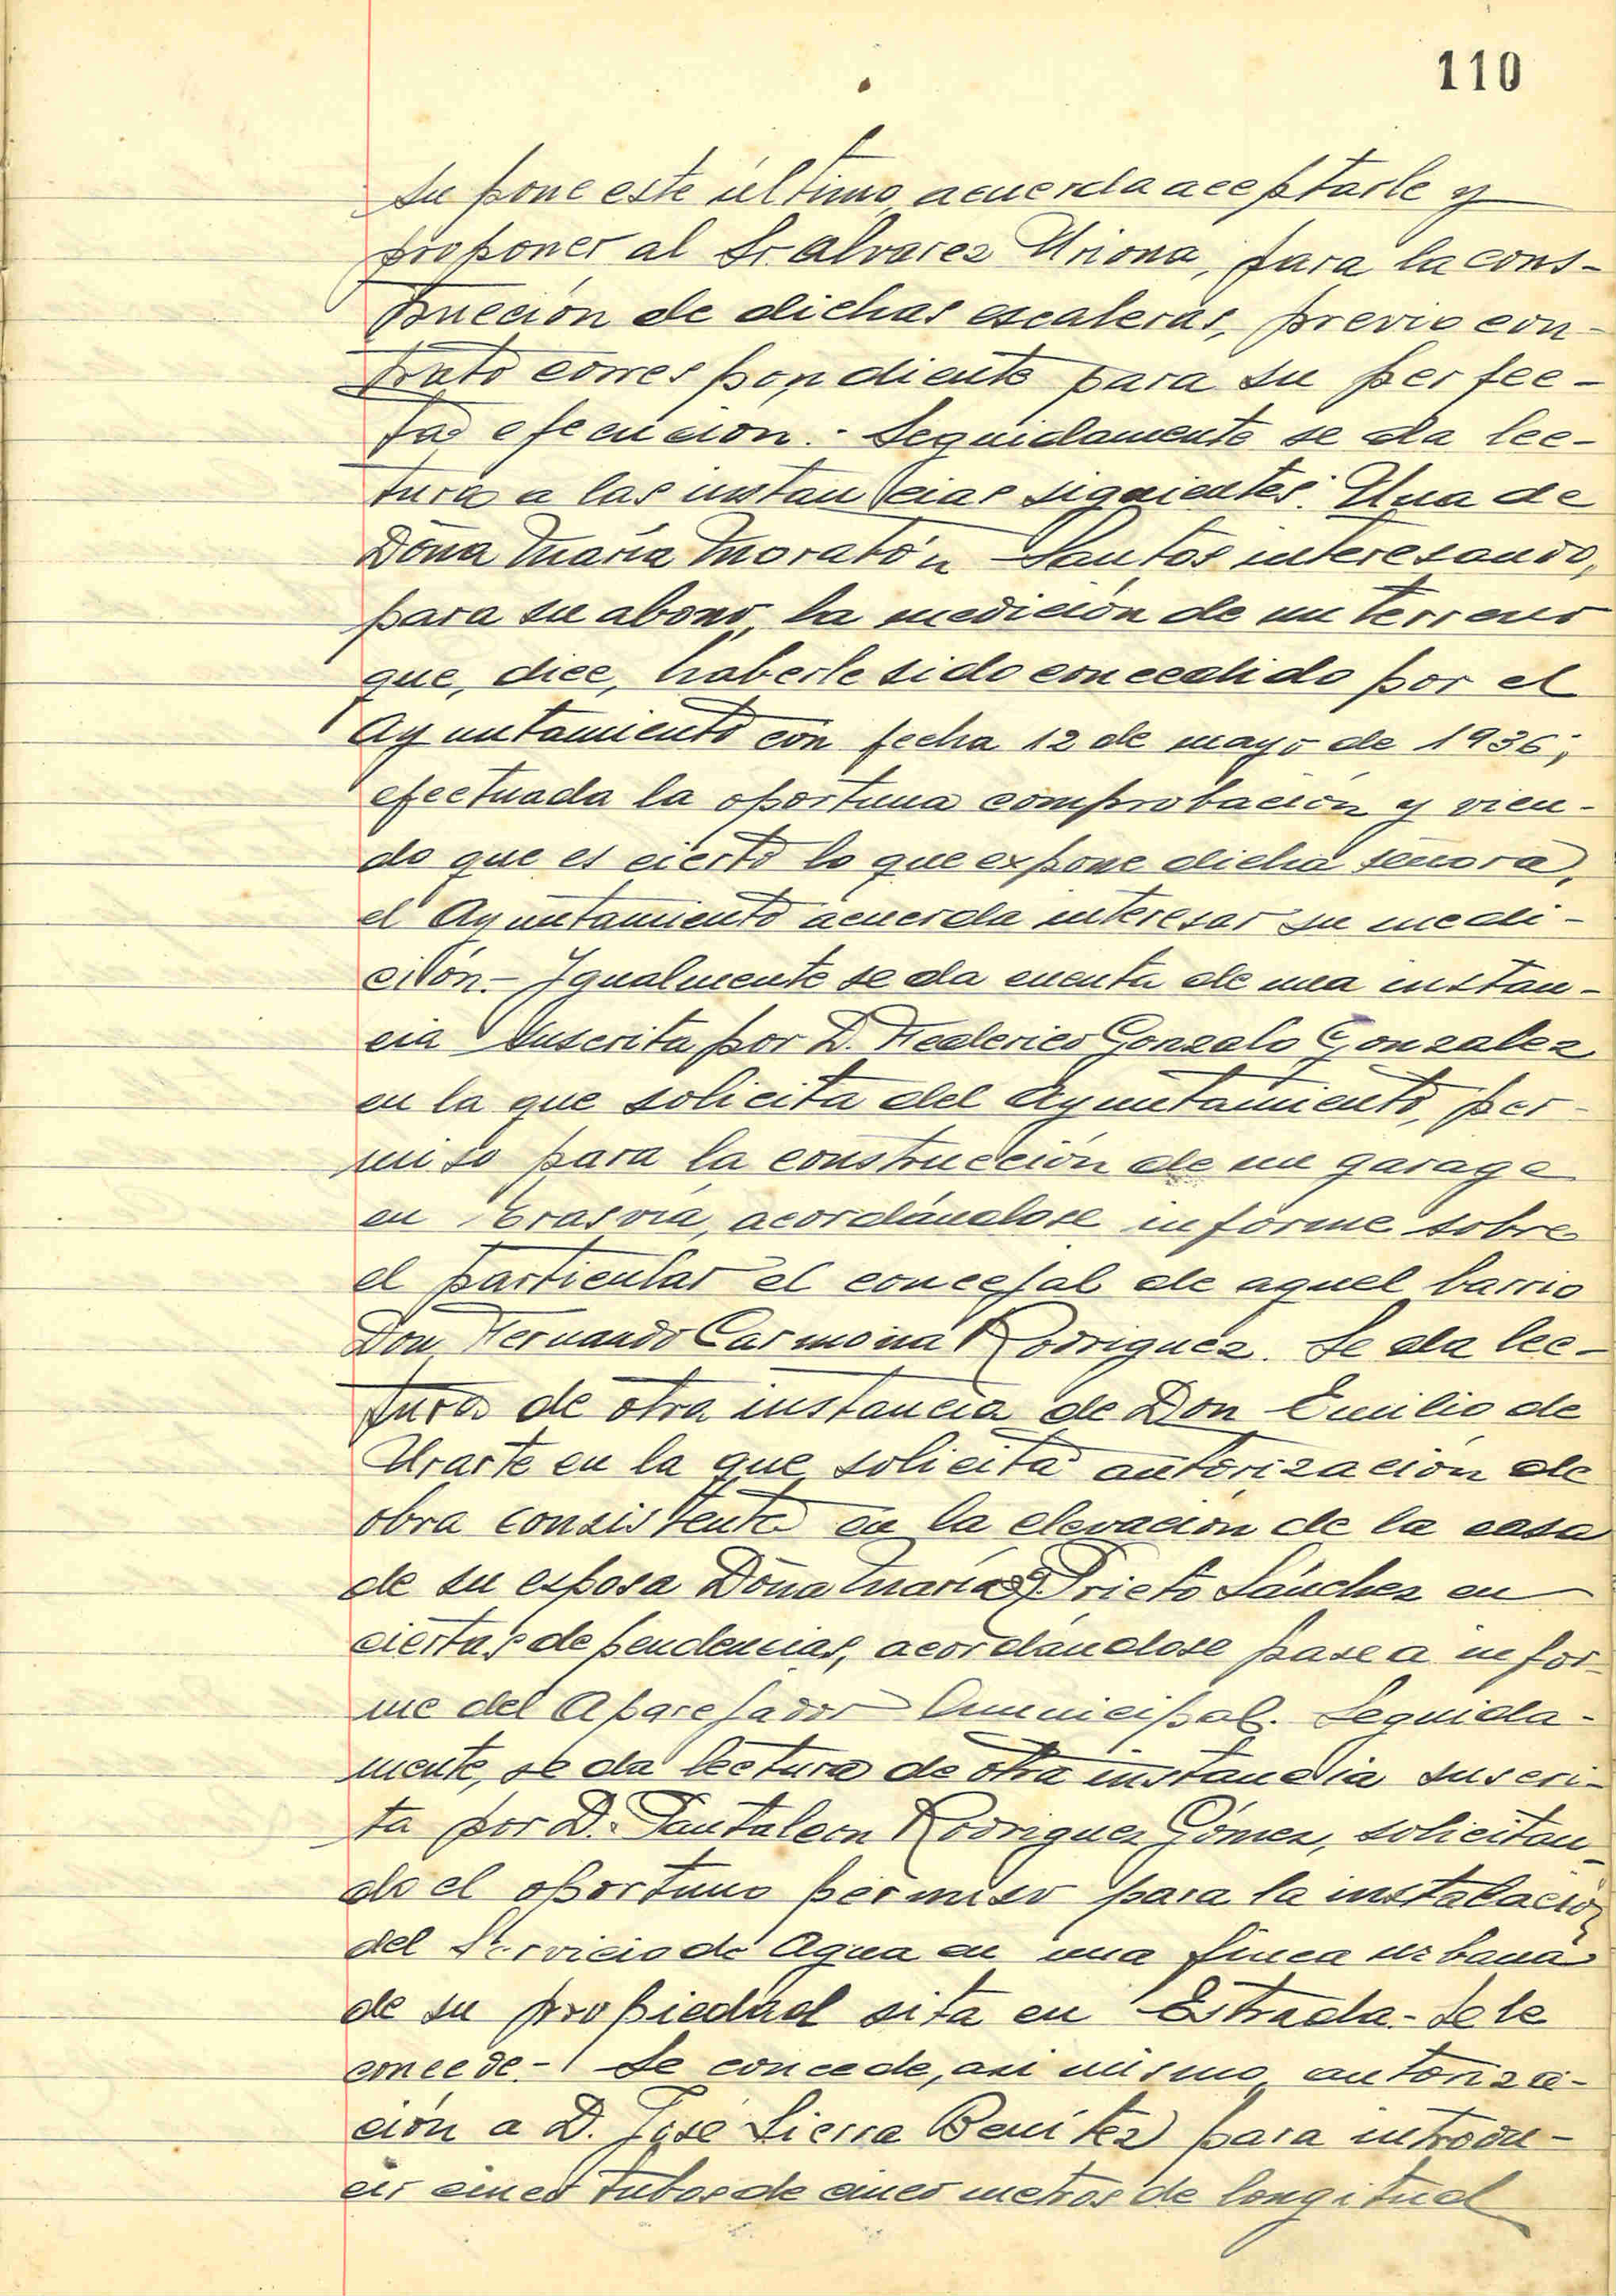 110
supone este último, acuerda aceptarle y
proponer al Sr. Alvarez Uriona, para la cons-
trucción de dichas escaleras, previo con-
trato correspondiente para su perfec-
ta ejecución.- Seguidamente se da lec-
tura a las instancias siguientes: Una de
Doña María Moratón Santos interesando,
para su abono, la medición de un terreno
que, dice, haberle sido concedido por el
Ayuntamiento con fecha 12 de mayo de 1936;
efectuada la oportuna comprobación y vien-
do que es cierto lo que expone dicha señora,
el Ayuntamiento acuerda interesar su medi-
ción.- Igualmente se da cuenta de una instan-
cia suscrita por D. Federico Gonzalo Gonzalez
en la que solicita del Ayuntamiento, per-
miso para la construcción de un garage
en Trasvía, acordándose informe sobre
el particular el concejal de aquel barrio
Don Fernando Carmona Rodriguez. Se da lec-
tura de otra instancia de Don Emilio de
Urarte en la que solicita autorización de
obra consistente en la elevación de la casa
de su esposa Doña María Prieto Sánchez en
ciertas dependencias, acordándose pase a infor-
me del Aparejador Municipal. Seguida-
mente, se da lectura de otra instancia suscri-
ta por D. Pantaleon Rodriguez Gómez, solicitan-
do el oportuno permiso para la instalación
del Servicio de Agua en una finca urbana
de su propiedad sita en Estrada.- Se le
concede.- Se concede, asi mismo, autoriza-
ción a D. José Sierra Benítez para introdu-
cir cinco tubos de cinco metros de longitud